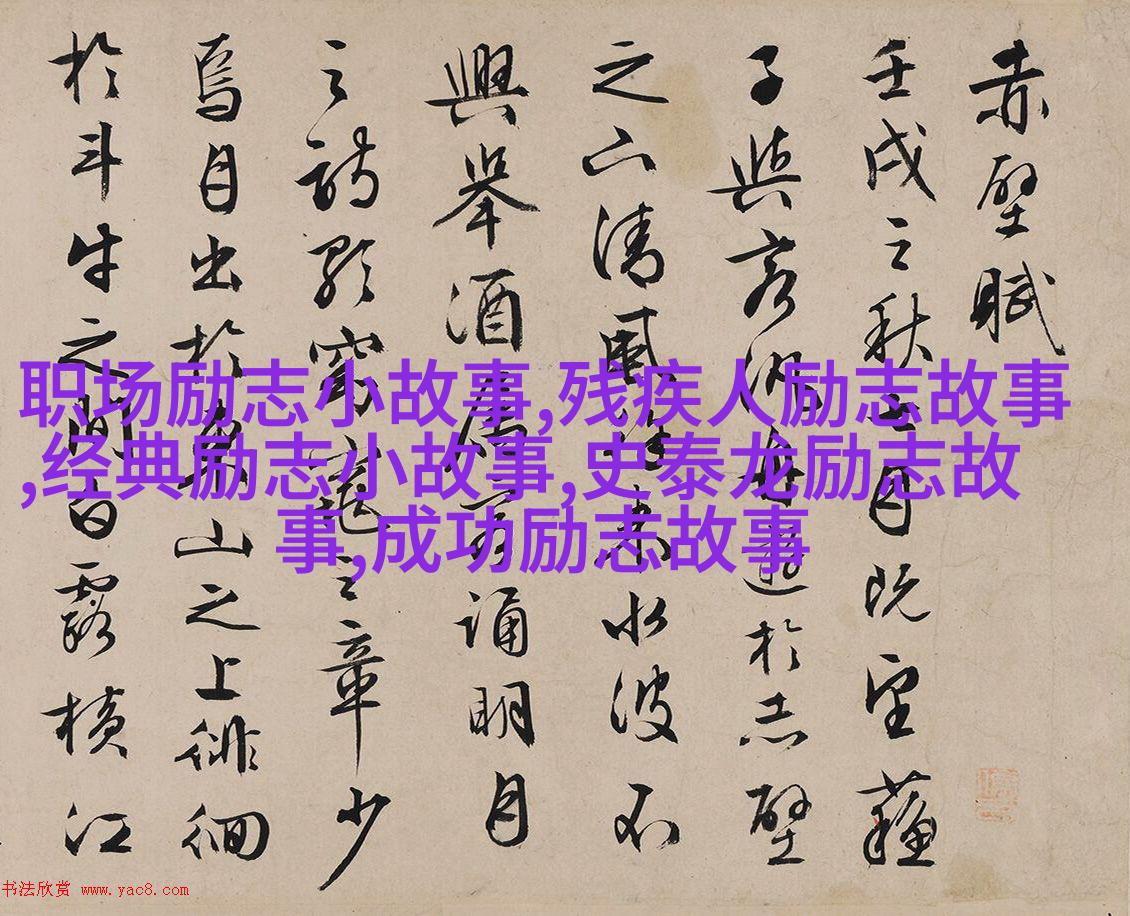 赤壁賦
壬戌之秋七月既望蘇
子與客汎舟遊於赤壁
之下清風徐來水波不
興舉酒屬客誦明月
之詩歌窈窕之章少
焉月出於東山之上徘徊
於斗牛之間白露橫江
职场励志小故事,残疾人励志故事
,经典励志小故事,史泰龙励志故
事,成功励志故事
书法欣赏 www.yac8.com